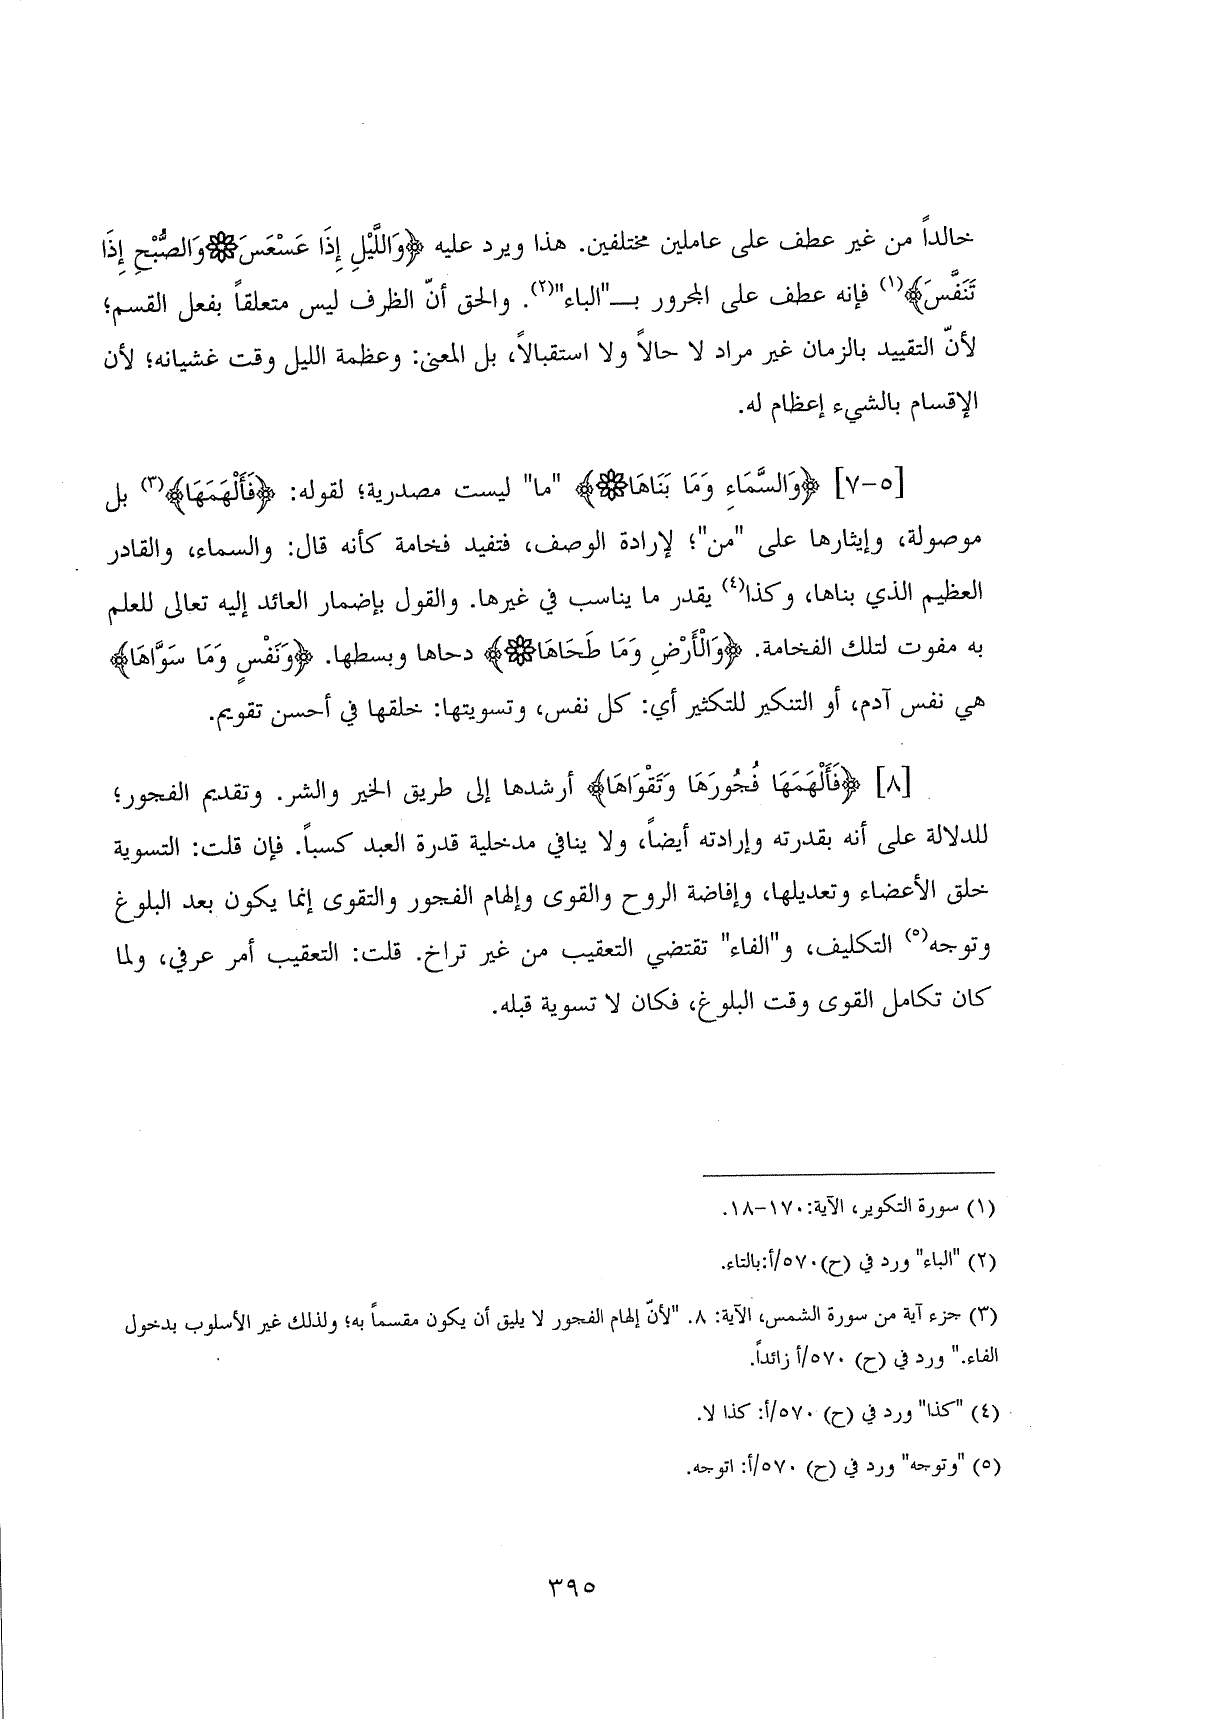 خالداً من غير عطف على عاملين مختلفين. هذا ويرد عليه ﴿وَاللَّيْلِ إِذَا عَسْعَسَ۞وَالصُّبْحِ إِذَا
تَنَفَّسَ﴾(١) فإنه عطف على المجرور بـ"الباء"(٢). والحق أنّ الظرف ليس متعلقاً بفعل القسم؛
لأنّ التقييد بالزمان غير مراد لا حالاً ولا استقبالاً، بل المعنى: وعظمة الليل وقت غشيانه؛ لأن
الإقسام بالشيء إعظام له.
[٥-٧] ﴿وَالسَّمَاءِ وَمَا بَنَاهَا۞﴾ "ما" ليست مصدرية؛ لقوله: ﴿فَأَلْهَمَهَا﴾(٣) بل
موصولة، وإيثارها على "من"؛ لإرادة الوصف، فتفيد فخامة كأنه قال: والسماء، والقادر
العظيم الذي بناها، وكذا(٤) يقدر ما يناسب في غيرها. والقول بإضمار العائد إليه تعالى للعلم
به مفوت لتلك الفخامة. ﴿وَالْأَرْضِ وَمَا طَحَاهَا۞﴾ دحاها وبسطها. ﴿وَنَفْسٍ وَمَا سَوَّاهَا﴾
هي نفس آدم، أو التنكير للتكثير أي: كل نفس، وتسويتها: خلقها في أحسن تقويم.
[٨] ﴿فَأَلْهَمَهَا فُجُورَهَا وَتَقْوَاهَا﴾ أرشدها إلى طريق الخير والشر. وتقديم الفجور؛
للدلالة على أنه بقدرته وإرادته أيضاً، ولا ينافي مدخلية قدرة العبد كسباً. فإن قلت: التسوية
خلق الأعضاء وتعديلها، وإفاضة الروح والقوى وإلهام الفجور والتقوى إنما يكون بعد البلوغ
وتوجه(٥) التكليف، و"الفاء" تقتضي التعقيب من غير تراخ. قلت: التعقيب أمر عرفي، ولما
كان تكامل القوى وقت البلوغ، فكان لا تسوية قبله.
(١) سورة التكوير، الآية: ١٧٠-١٨.
(٢) "الباء" ورد في (ح)٥٧٠/أ:بالتاء.
(٣) جزء آية من سورة الشمس، الآية: ٨. "لأنّ إلهام الفجور لا يليق أن يكون مقسماً به؛ ولذلك غير الأسلوب بدخول
الفاء." ورد في (ح) ٥٧٠/أ زائداً.
(٤) "كذا" ورد في (ح) ٥٧٠/أ: كذا لا.
(٥) "وتوجه" ورد في (ح) ٥٧٠/أ: اتوجه.
٣٩٥